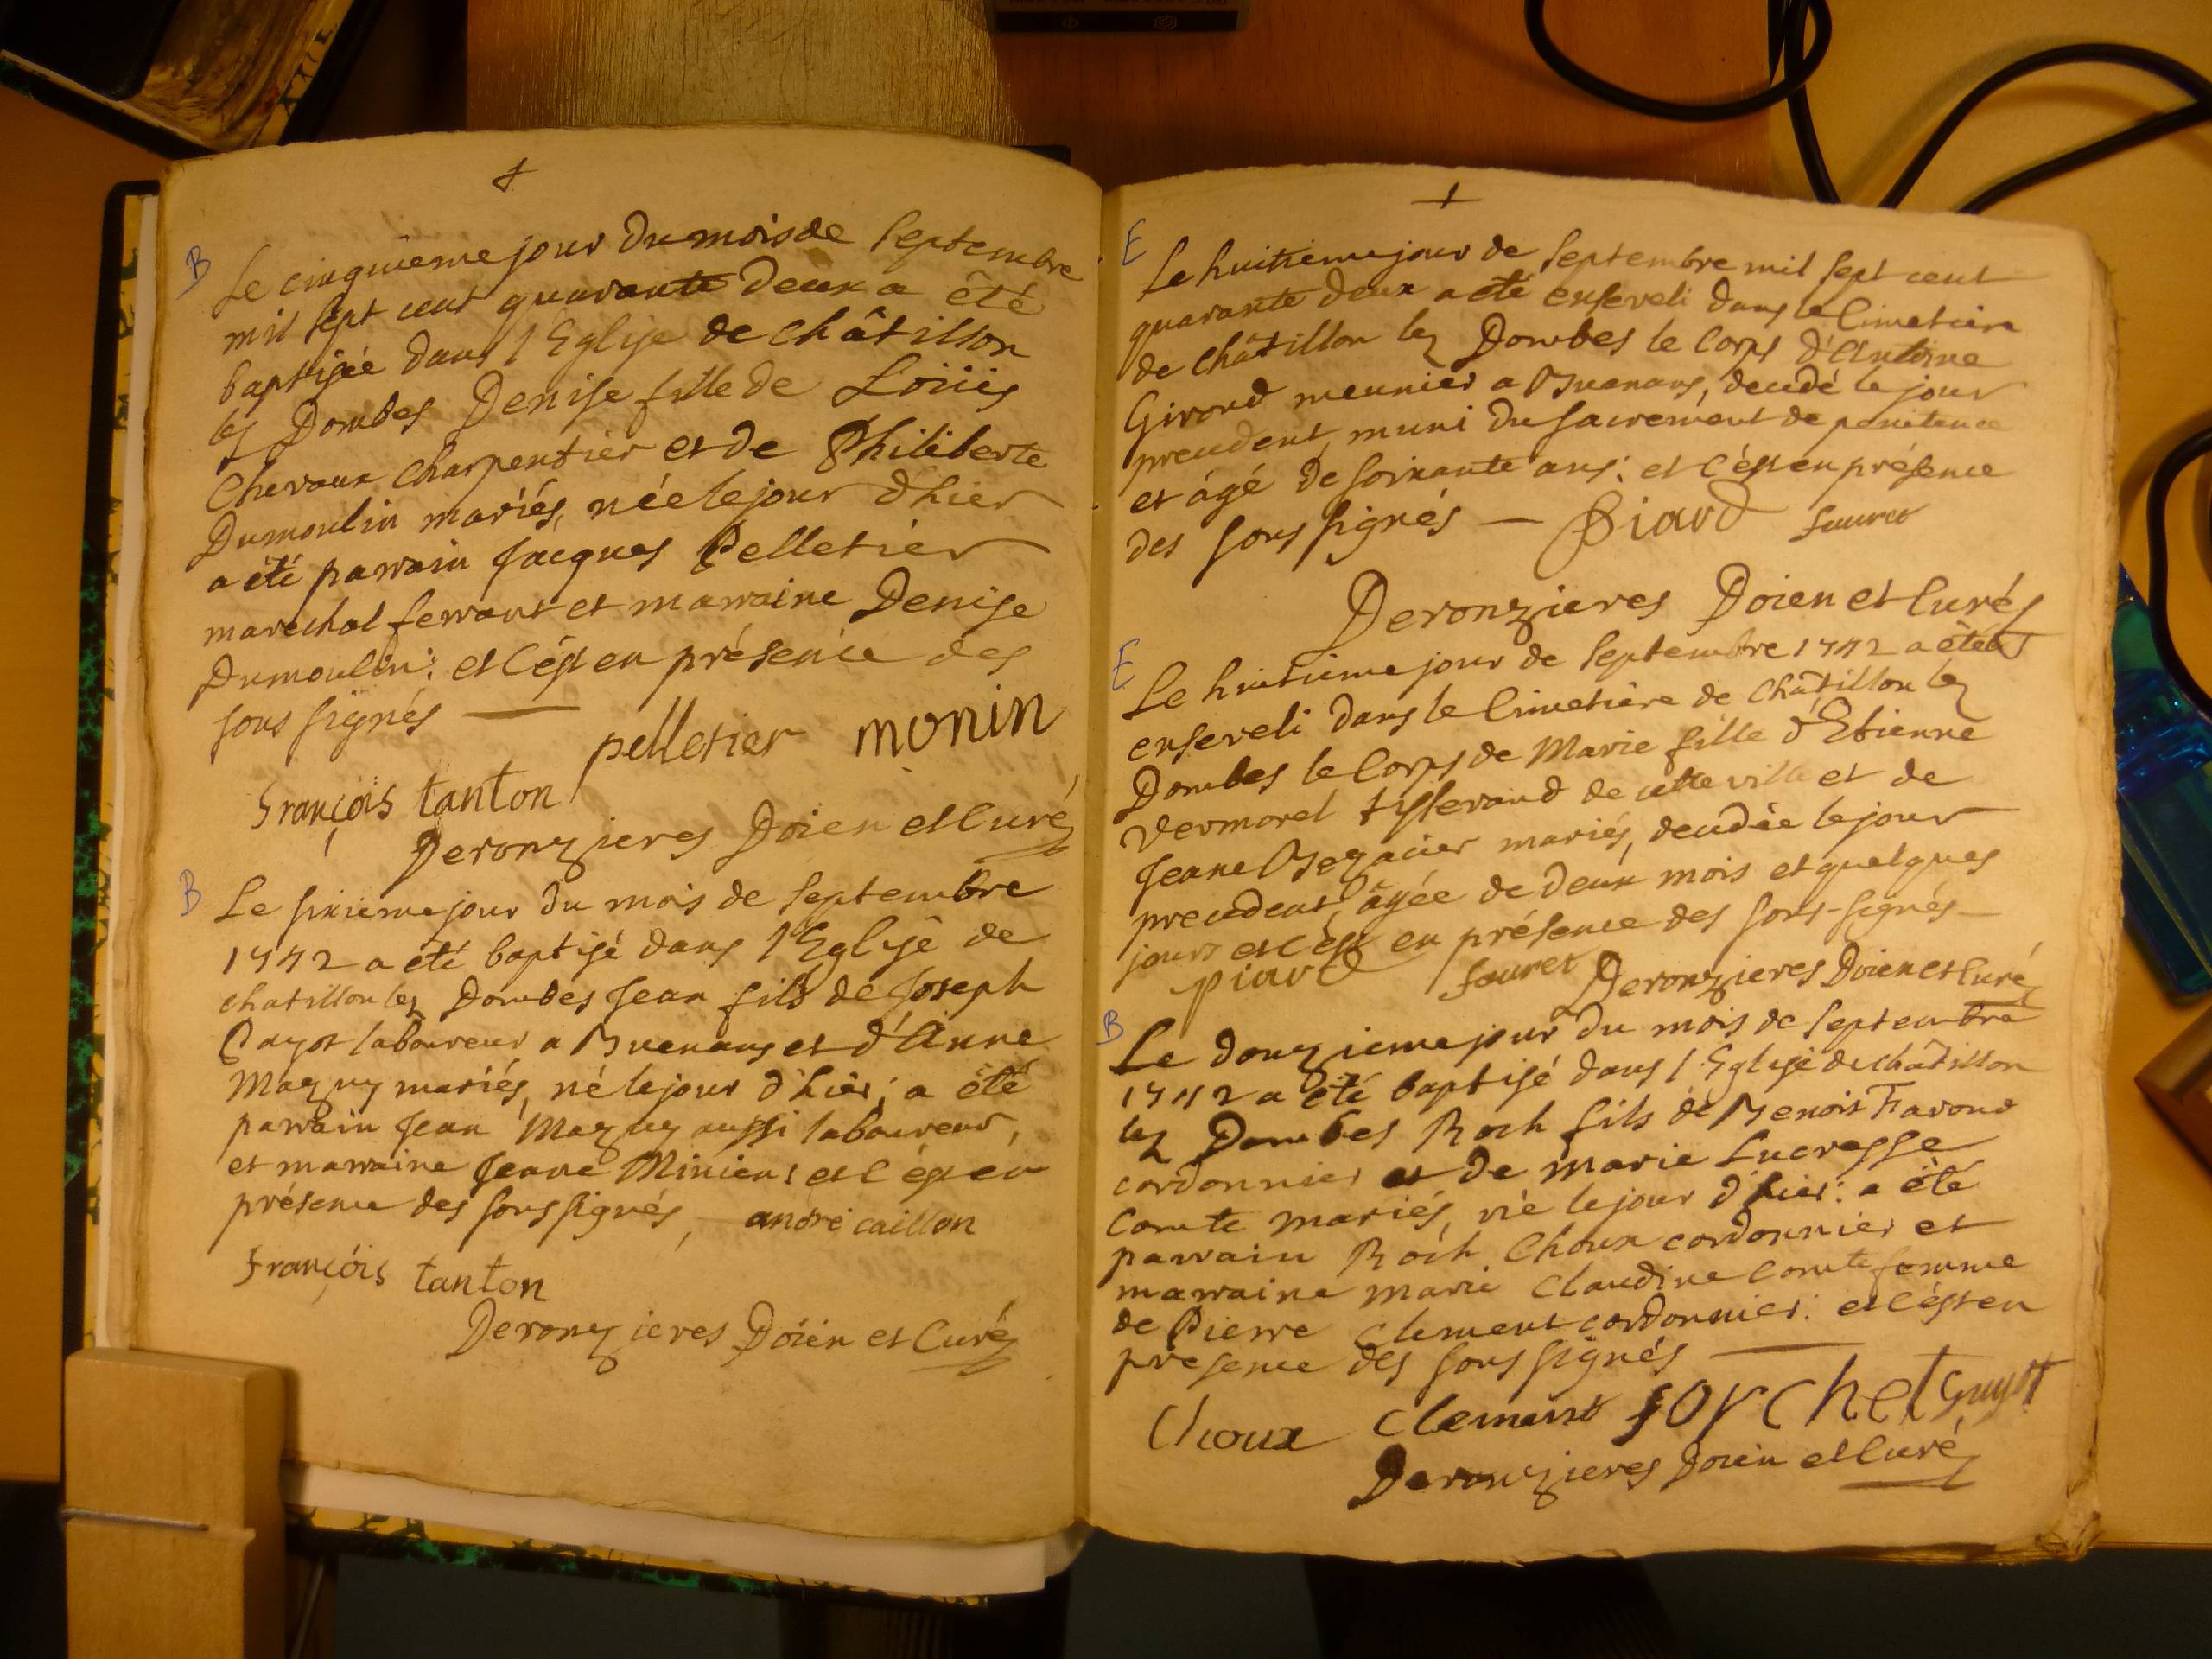 B
Le cinquieme jour du mois de Septembre
mil sept cent quarante deux a été
baptisée dans l'Eglise de châtillon
lez Dombes Denise fille de Loüis
Chevaux charpentier et de Philiberte
Dumoulin mariés, née le jour d'hier
a été parrain Jacques Pelletier
marechal ferrant et marraine Denise
Dumoulin: et c'est en présence des
sous signés
pelletier monin
françois tanton
Deronzieres Doien et Curé
B
Le sixieme jour du mois de Septembre
1742 a été baptisé dans l'Eglise de
chatillon lez Dombes Jean fils de Joseph
laboureur a Buenans et d'Anne
Mazuy mariés, né le jour d'hier; a été
parrain Jean Mazuy aussi laboureur,
et marraine Jeane et c'est en
présence des sous signés, andré caillon
françois tanton
Deronzieres Doien et Curé
E
Le huitieme jour de Septembre mil sept cent
quarante deux a eté enseveli dans le Cimetiere
de châtillon lez Dombes le Corps d'Antoine
Giroud meunier a Buenans, decedé le jour
precedent, muni du sacrement de penitence
et âgé de soixante ans: et c'est en présence
des sous signés — Piard fauret
Deronzieres Doien et Curé
E
Le huitieme jour de Septembre 1742 a été
enseveli dans le Cimetière de Châtillon lez
Dombes le Corps de Marie fille d'Etienne
Vermorel tisserand de cette ville et de
Jeane Bezacier mariés, decedée le jour
precedent, âgée de deux mois et quelques
jours et c'est en présence des sous-signés —
piard fauret Deronzieres Doien et Curé
B
Le douzieme jour du mois de Septembre
1742 a été baptisé dans l'Eglise de châtillon
lez Dombes Roch fils de Benoist Favond
cordonnier et de marie Lucresse
Comte mariés, né le jour d'hier: a été
parrain Roch Choux cordonnier et
marraine marie Claudine Comte femme
de Pierre Clement cordonnier: et c'est en
presence des sous signés
Choux Clement sorchet Guyot
Deronzieres Doien et Curé